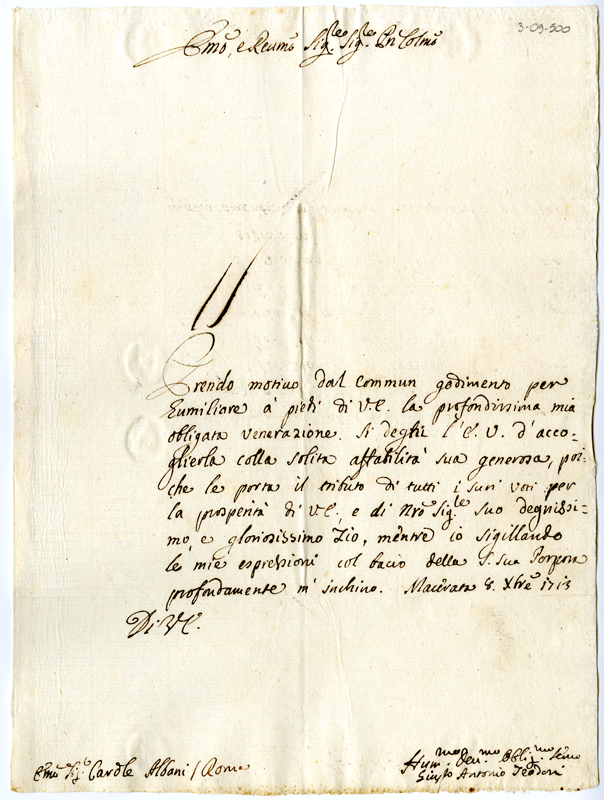 3-09-500
Emo, e Reumo Sig.re Sig.re Pn Colmo
Prendo motiuo dal commun godimento per
humiliare à piedi di V.E. la profondissima mia
obligata venerazione. Si degni l'E. V. d'acco-
glierla colla solita affabilità sua generosa, poi-
che le porta il tributo di tutti i suoi voti per
la prosperità di V.E., e di Nro Sig.re suo degnissi-
mo, e gloriosissimo Zio, mentre io sigillando
le mie espressioni col bacio della S. sua Porpora
profondamente m'inchino. Macerata 8. Xbre 1713
Di V.E.
Hum.mo Deu.mo Oblig.mo Seruo
Emo Sig.r Cardle Albani / Roma
Antonio Teodori